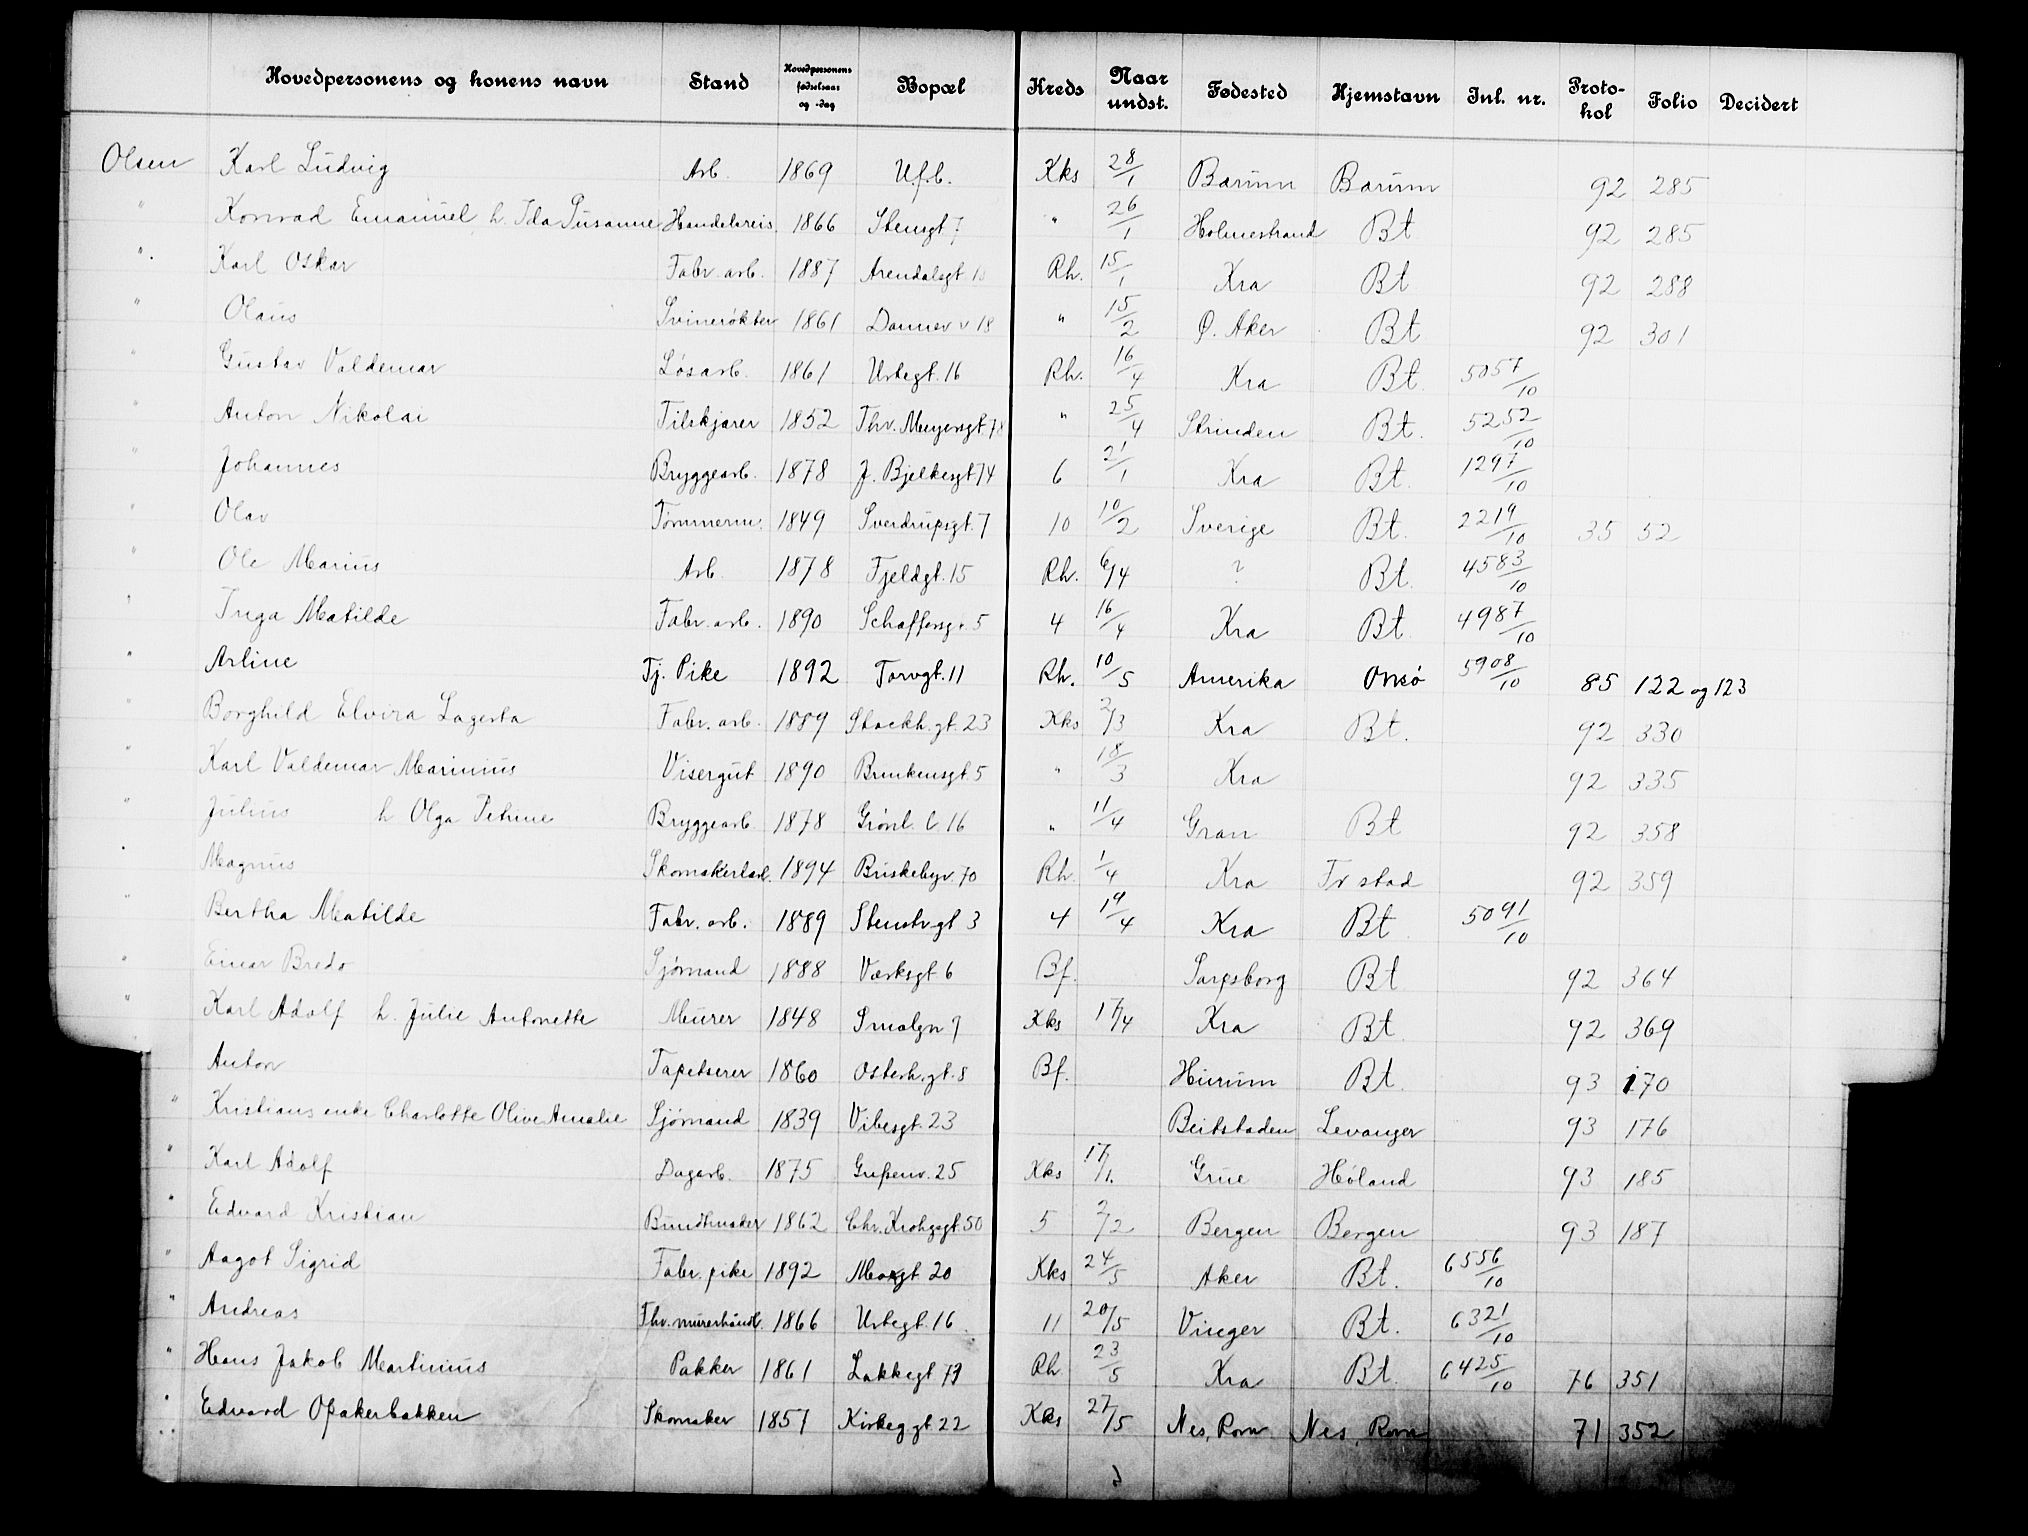 Hovedpersonens og konens navn Stand Hovedpersonens fødselsaar og -dag Bopæl Kreds Naar undst. Fødested Hjemstavn Inl. nr. Protokol Folio Decidert
Olsen Karl Ludvig Arb. 1869 U.f.b. Kks 28/1 Bærum Bærum 92 285
" Konrad Emanuel, h. Ida Susanne Handelsreis. 1866 Stensgt 7 " 26/1 Holmestrand Bt 92 285
" Karl Oskar Fabr. arb. 1887 Arendalsgt Rh. 15/1 Kra Bt 92 288
" Olaus Svinerøkter 1861 Dannev v 18 " 15/2 Ø. Aker Bt 92 301
" Gustav Valdemar Løsarb. 1861 Urtegt. 16 Rh. 16/4 Kra Bt. 5057/10
" Anton Nikolai Tilskjærer 1852 Thv. Meyersgt 78 " 25/4 Strinden Bt. 5252/10
" Johannes Bryggearb. 1878 J. Bjelkesgt 74 6 21/1 Kra Bt. 1297/10
" Olav Tømmerm. 1849 Sverdrupsgt. 7 10 10/2 Sverige Bt. 2219/10 35 52
" Ole Marius Arb. 1878 Fjeldgt. 15 Rh. 6/4 ? Bt. 4583/10
" Inga Matilde Fabr. arb. 1890 Schaffersg. 5 4 16/4 Kra Bt. 4987/10
" Arline Tj. Pike 1892 Torvgt. 11 Rh. 10/5 Amerika Onsø 5908/10 85 122 og 123
" Borghild Elvira Lagerta Fabr. arb. 1889 Stockh. gt. 23 Kks 2/3 Kra Bt. 92 330
" Karl Valdemar Marinius Visergut 1890 Brinkensgt. 5 " 18/3 Kra 92 335
" Julius h Olga Petrine Bryggearb. 1878 Grønl. l. 16 " 11/4 Gran Bt 92 358
" Magnus Skomakerlærl. 1894 Briskebyv. 70 Rh. 1/4 Kra Fr stad 92 359
" Bertha Matilde Fabr. arb. 1889 Stenstr. gt 3 4 19/4 Kra Bt 5091/10
" Einar Bredo Sjømand 1888 Værksgt 6 Bf. Sarpsborg Bt 92 364
" Karl Adolf h. Julie Antonette Murer 1848 Smalgn 9 Kks 17/4 Kra Bt. 92 369
Anton Tapetserer 1860 Osterh. gt. 8 Bf. Hurum Bt. 93 170
" Kristians enke Charlotte Olive Amalie Sjømand 1839 Vibesgt. 23 Beitstaden Levanger 93 176
" Karl Adolf Dagarb. 1875 Grüßenv. 25 Kks 17/1. Grue Høland 93 185
" Edvard Kristian Buntmaker 1862 Chr. Krohgsgt. 50 5 2/2 Bergen Bergen 93 187
" Aagot Sigrid Fabr. pike 1892 20 Kks 24/5 Aker Bt. 6556/10
" Andreas Fhv. murerhåndl. 1866 Urtegt. 16. 11 20/5 Vinger Bt. 6321/10
" Hans Jakob Martinius Pakker 1861 Lakkegt Rh 23/5 Kra Bt. 6425/10 76 351
" Edvard Opakerbakken Skomaker 1857 Kirkeg. gt. 22 Kks 27/5 Nes, Rom. Nes, Rom 71 352